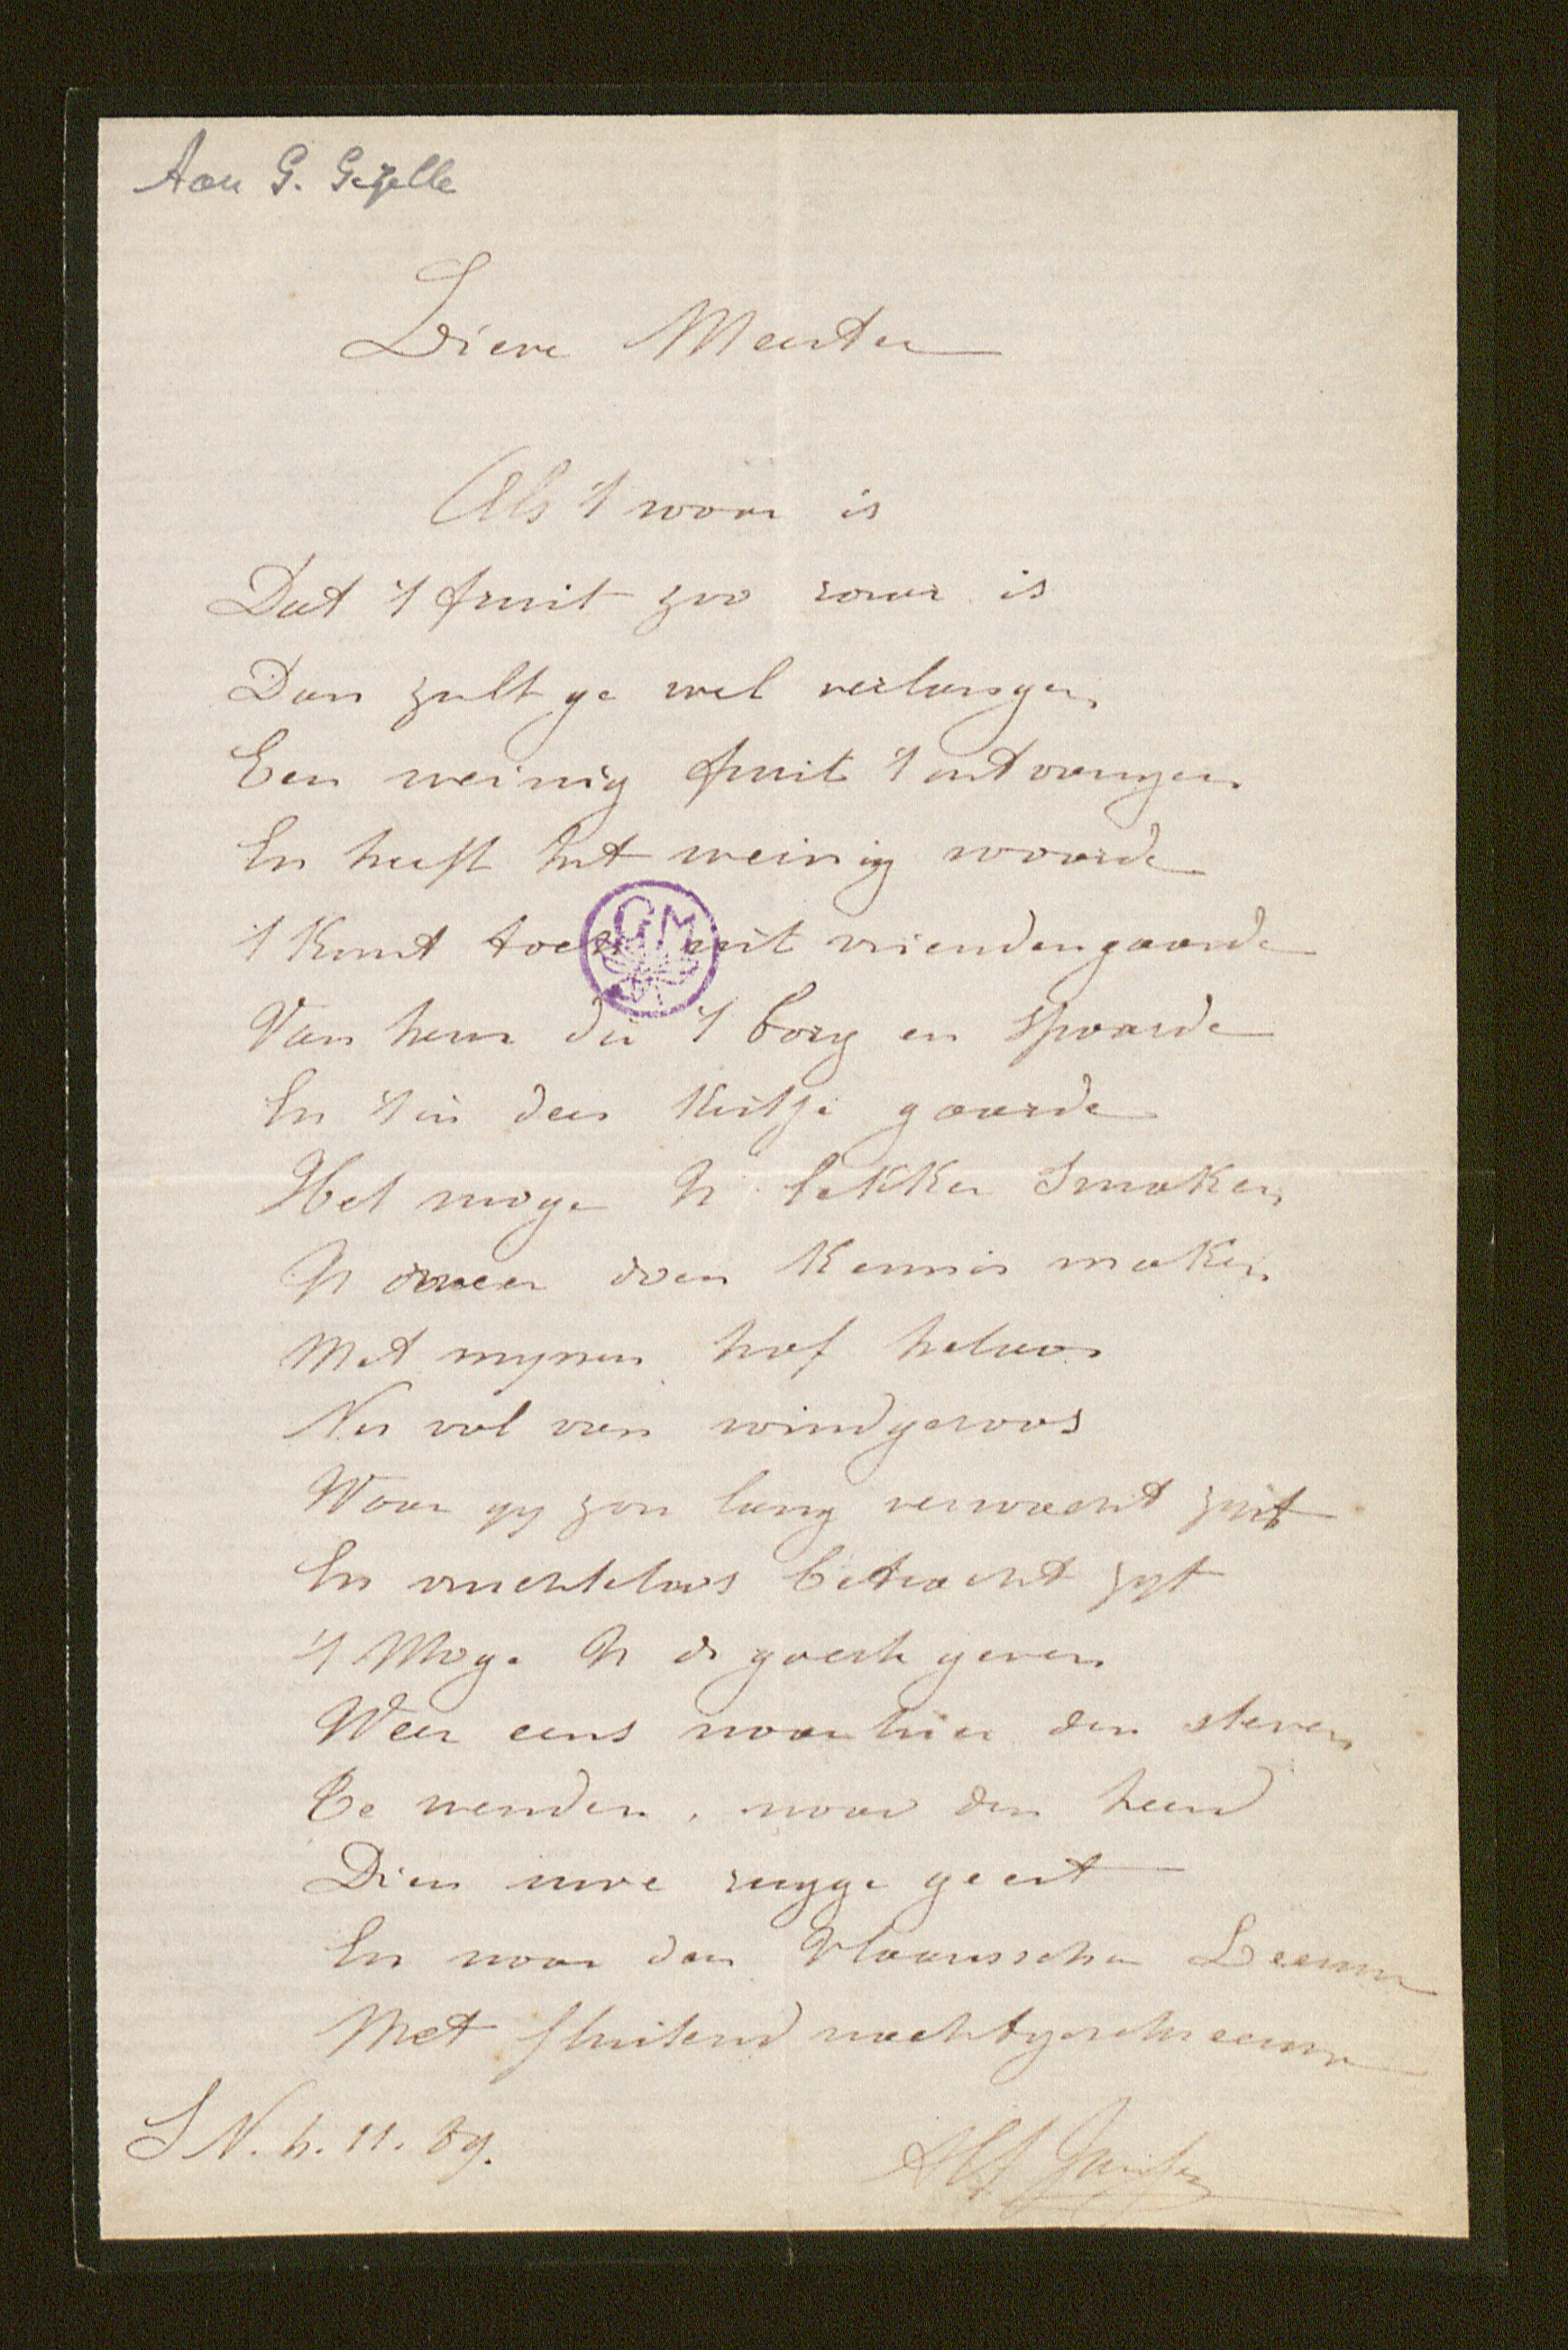 Aan G. Gezelle
Diere Meester
Als 't waar is
Dat 't fruit zoo raar is
Dan zult ge wel verlangen
Een weinig fruit 't ontvangen
En heeft het weinig waarde
't Komt toch uit vriendengaarde
Van hem die 't borg en spaarde
En 't in dees kistje gaarde
Het moge U lekker smaken
U weer doen kennis maken
Met mynen hof helaas
Nu vol van windgeraas
Waar gy zoo lang verwacht zyt
En vruchteloos betracht zyt
't Moge U de goeste geven
Weer eens naar hier den steven
Te wenden, naar den heerd
Dien uwe rugge geert
En naar den Vlaamschen Leeuw
Met fluitend nachtgeschreeuw
S N. 4. 11. 89.
Alf Janssen
GM